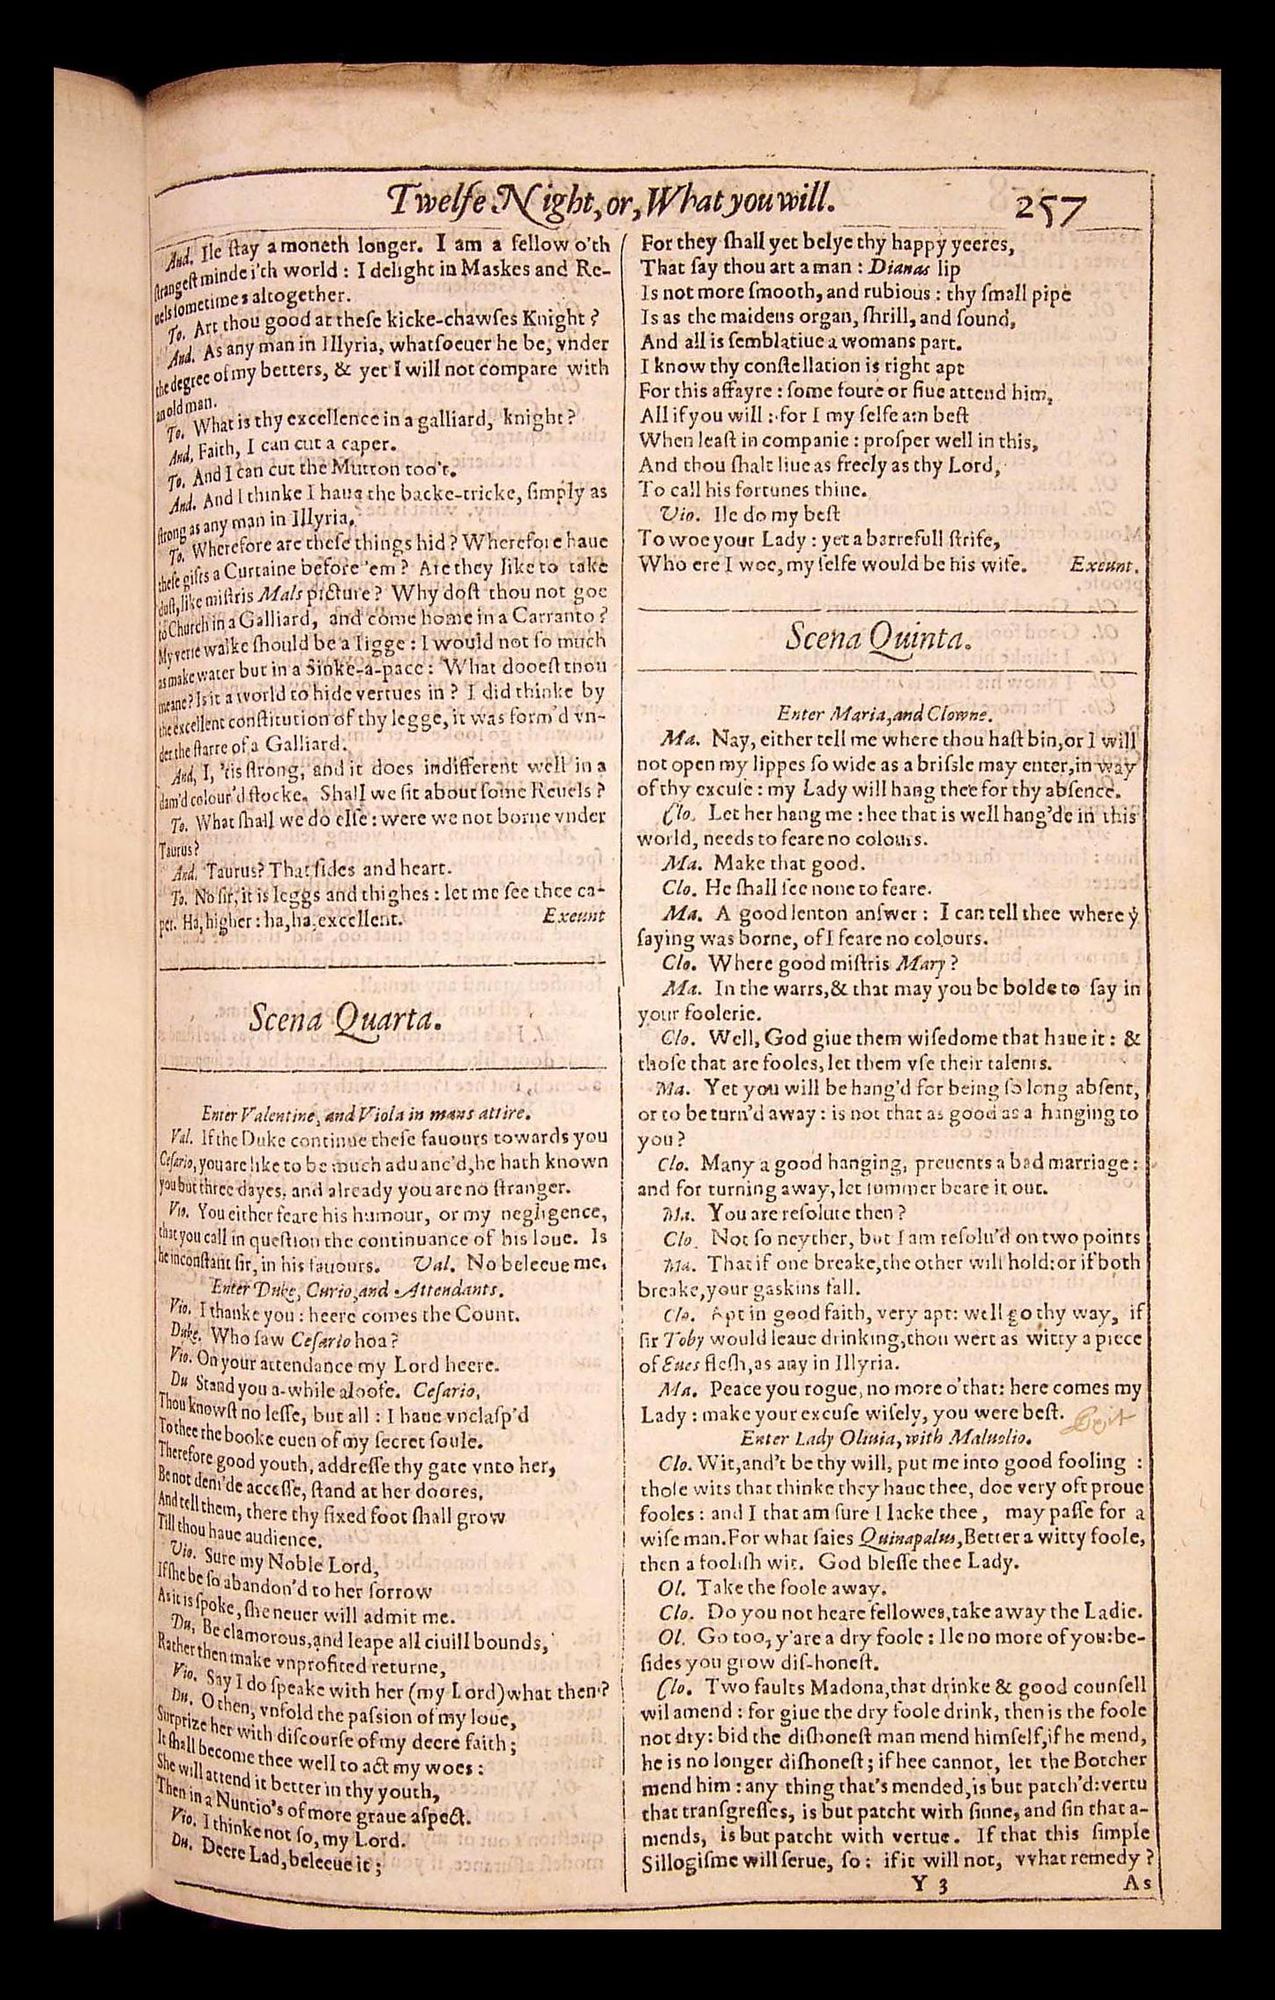 Twelfe Night, or, What you will. 257
And. Ile ſtay a moneth longer. I am a fellow o'th
ſtrangeſt minde i'th world : I delight in Maskes and Re-
uels ſometimes altogether.
To. Art thou good at theſe kicke-chawſes Knight ?
And. As any man in Illyria, whatſoeuer he be, vnder
the degree of my betters, & yet I will not compare with
an old man.
To. What is thy excellence in a galliard, knight ?
And. Faith, I can cut a caper.
To. And I can cut the Mutton too't.
And. And I thinke I haue the backe-tricke, ſimply as
ſtrong as any man in Illyria.
To. Wherefore are theſe things hid ? Wherefore haue
theſe gifts a Curtaine before 'em ? Are they like to take
duſt, like miſtris Mals picture ? Why doſt thou not goe
to Church in a Galliard, and come home in a Carranto ?
My verie walke ſhould be a Iigge : I would not ſo much
as make water but in a Sinke-a-pace : What dooeſt thou
meane ? Is it a world to hide vertues in ? I did thinke by
the excellent conſtitution of thy legge, it was form'd vn-
der the ſtarre of a Galliard.
And, I, 'tis ſtrong, and it does indifferent well in a
dam'd colour'd ſtocke. Shall we ſit about ſome Reuels ?
To. What ſhall we do elſe : were we not borne vnder
Taurus ?
And. Taurus? That ſides and heart.
To. No ſir, it is leggs and thighes : let me ſee thee ca-
per. Ha, higher : ha, ha, excellent. Exeunt
Scena Quarta.
Enter Valentine, and Viola in mans attire.
Val. If the Duke continue theſe fauours towards you
Ceſario, you are like to be much aduanc'd, he hath known
you but three dayes, and already you are no ſtranger.
Vio. You either feare his humour, or my negligence,
that you call in queſtion the continuance of his loue. Is
he inconſtant ſir, in his fauours. Val. No beleeue me.
Enter Duke, Curio, and Attendants.
Vio. I thanke you : heere comes the Count.
Duke. Who ſaw Ceſario hoa ?
Vio. On your attendance my Lord heere.
Du Stand you a-while aloofe. Ceſario,
Thou knowſt no leſſe, but all : I haue vnclaſp'd
To thee the booke euen of my ſecret ſoule.
Therefore good youth, addreſſe thy gate vnto her,
Be not deni'de acceſſe, ſtand at her doores,
And tell them, there thy fixed foot ſhall grow
Till thou haue audience.
Vio. Sure my Noble Lord,
If ſhe be ſo abandon'd to her ſorrow
As it is ſpoke, ſhe neuer will admit me.
Du. Be clamorous, and leape all ciuill bounds,
Rather then make vnprofited returne,
Vio. Say I do ſpeake with her (my Lord) what then ?
Du. O then, vnfold the paſsion of my loue,
Surprize her with diſcourſe of my deere faith ;
It ſhall become thee well to act my woes :
She will attend it better in thy youth,
Then in a Nuntio's of more graue aſpect.
Vio. I thinke not ſo, my Lord.
Du. Deere Lad, beleeue it ;
For they ſhall yet belye thy happy yeeres,
That ſay thou art a man : Dianas lip
Is not more ſmooth, and rubious : thy ſmall pipe
Is as the maidens organ, ſhrill, and ſound,
And all is ſemblatiue a womans part.
I know thy conſtellation is right apt
For this affayre : ſome foure or fiue attend him,
All if you will : for I my ſelfe am beſt
When leaſt in companie : proſper well in this,
And thou ſhalt liue as freely as thy Lord,
To call his fortunes thine.
Vio. Ile do my beſt
To woe your Lady : yet a barrefull ſtrife,
Who ere I woe, my ſelfe would be his wife. Exeunt.
Scena Quinta.
Enter Maria, and Clowne.
Ma. Nay, either tell me where thou haſt bin, or I will
not open my lippes ſo wide as a briſsle may enter, in way
of thy excuſe : my Lady will hang thee for thy abſence.
Clo. Let her hang me : hee that is well hang'de in this
world, needs to feare no colours.
Ma. Make that good.
Clo. He ſhall ſee none to feare.
Ma. A good lenton anſwer : I can tell thee where ẏ
ſaying was borne, of I feare no colours.
Clo. Where good miſtris Mary ?
Ma. In the warrs, & that may you be bolde to ſay in
your foolerie.
Clo. Well, God giue them wiſedome that haue it : &
thoſe that are fooles, let them vſe their talents.
Ma. Yet you will be hang'd for being ſo long abſent,
or to be turn'd away : is not that as good as a hanging to
you ?
Clo. Many a good hanging, preuents a bad marriage :
and for turning away, let ſummer beare it out.
Ma. You are reſolute then ?
Clo. Not ſo neyther, but I am reſolu'd on two points
Ma. That if one breake, the other will hold: or if both
breake, your gaskins fall.
Clo. Apt in good faith, very apt: well go thy way, if
ſir Toby would leaue drinking, thou wert as witty a piece
of Eues fleſh, as any in Illyria.
Ma. Peace you rogue, no more o'that: here comes my
Lady : make your excuſe wiſely, you were beſt. Exit
Enter Lady Oliuia, with Maluolio.
Clo. Wit, and't be thy will, put me into good fooling :
thoſe wits that thinke they haue thee, doe very oft proue
fooles : and I that am ſure I lacke thee, may paſſe for a
wiſe man. For what ſaies Quinapalus, Better a witty foole,
then a fooliſh wit. God bleſſe thee Lady.
Ol. Take the foole away.
Clo. Do you not heare fellowes, take away the Ladie.
Ol. Go too, y'are a dry foole : Ile no more of you: be-
ſides you grow diſ-honeſt.
Clo. Two faults Madona, that drinke & good counſell
wil amend : for giue the dry foole drink, then is the foole
not dry: bid the diſhoneſt man mend himſelf, if he mend,
he is no longer diſhoneſt ; if hee cannot, let the Botcher
mend him : any thing that's mended, is but patch'd: vertu
that tranſgreſſes, is but patcht with ſinne, and ſin that a-
mends, is but patcht with vertue. If that this ſimple
Sillogiſme will ſerue, ſo : if it will not, vvhat remedy ?
Y 3 As